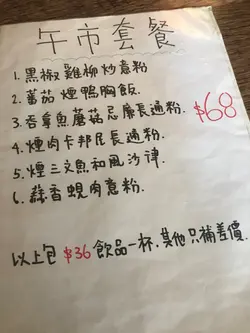 午市套餐
1. 黑椒雞柳炒意粉
2. 蕃茄煙鴨胸飯.
3. 吞拿魚蘑菇忌廉長通粉.
$68
4. 煙肉卡邦尼長通粉.
5. 煙三文魚和風沙律.
6. 蒜香蜆肉意粉.
以上包$36飲品一杯.其他只補差價.